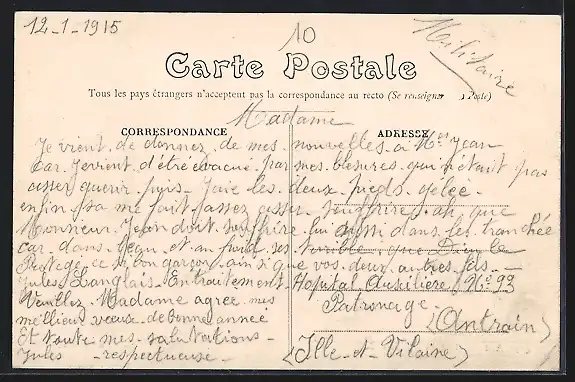 12-1-1915
10
Militaire
Carte Postale
Tous les pays étrangers n'acceptent pas la correspondance au recto (Se renseigner Poste)
Madame
CORRESPONDANCE
ADRESSE
Je vient de donnez de mes nouvelles a Mr Jean
car Jevient d'être évacué par mes blesures qui n'était pas
asser guerir puis Jaie les deux pieds gelée
enfin sa me fait assez souffrire ah que
Monsieur Jean doit souffrire lui aussi dans les tranchée
car dans leau et au froid ses terrible que Dieu le
Protège ce si bon garçon ainsi que vos deux autres fils
Jules Langlais Entraitement Hopital Auxiliere No 93
Veuillez Madame agrée mes Patronage
meillieur vœux de bonne année (Antrain)
Et toute mes salutations (Ille-et-Vilaine)
Jules respectueuse